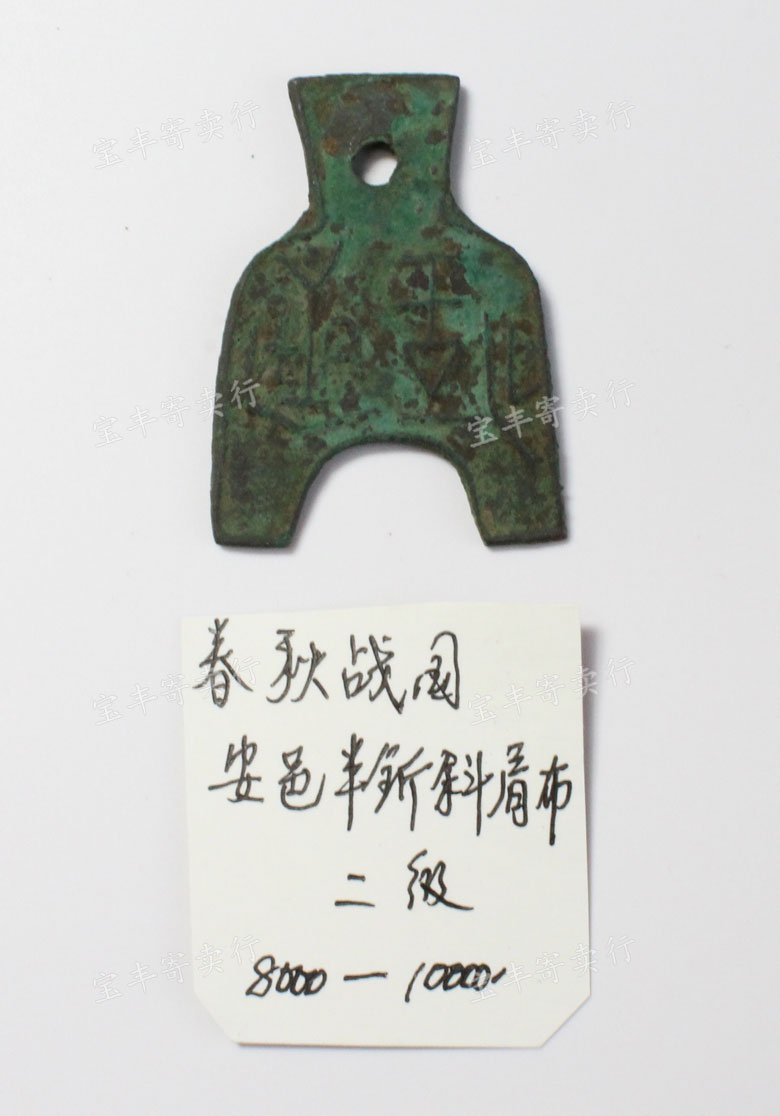 宝丰寄卖行
宝丰寄卖行
宝丰寄卖行
宝丰寄卖行
春秋战国
宝丰寄卖行
宝丰寄卖行
安邑半釿斜肩布
二级
8000—10000
宝丰寄卖行
宝丰寄卖行